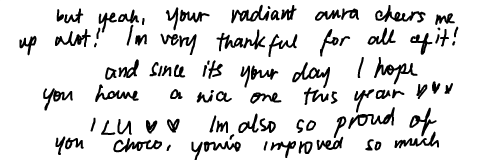 but yeah, your radiant aura cheers me
up alot! Im very thankful for all of it!
and since its your day I hope
you have a nice one this year ♥♥♥
ILU ♥♥ Im also so proud of
you choco, you've improved so much